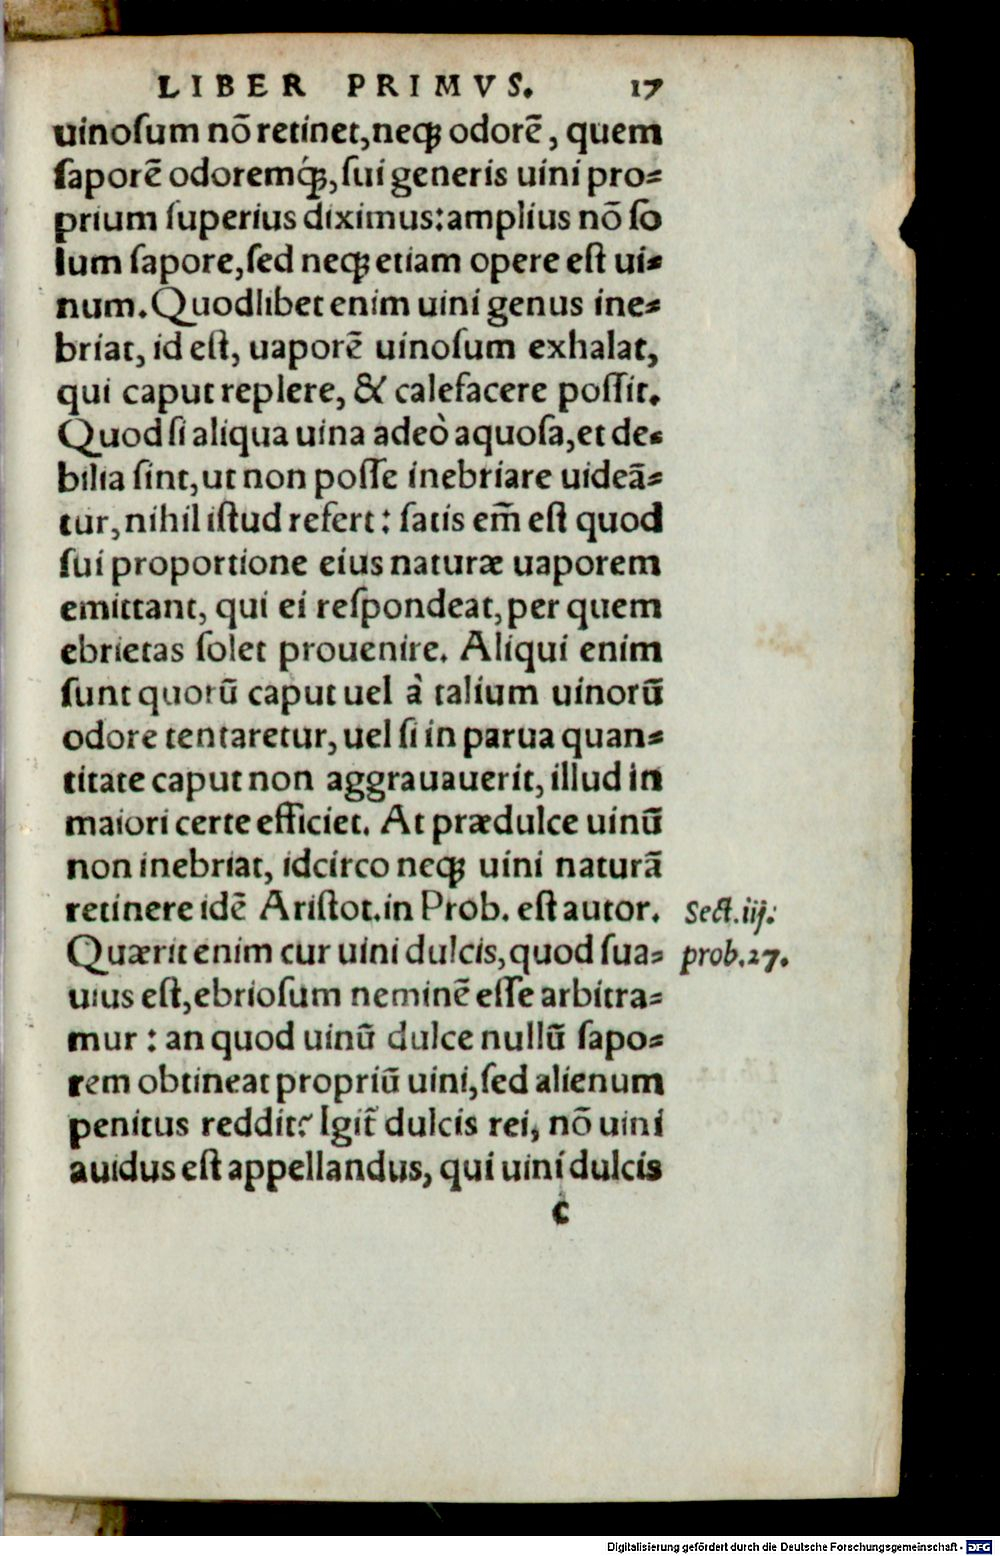 LIBER PRIMVS. 17
uinoſum nō retinet, neq; odorē, quem
ſaporē odoremq́;, ſui generis uini pro-
prium ſuperius diximus: amplius nō ſo
lum ſapore, ſed neq; etiam opere eſt ui-
num. Quodlibet enim uini genus ine-
briat, id eſt, uaporē uinoſum exhalat,
qui caput replere, & calefacere poſſit.
Quod ſi aliqua uina adeò aquoſa, et de-
bilia ſint, ut non poſſe inebriare uideā-
tur, nihil iſtud refert: ſatis em̃ eſt quod
ſui proportione eius naturæ uaporem
emittant, qui ei reſpondeat, per quem
ebrietas ſolet prouenire. Aliqui enim
ſunt quorū caput uel à talium uinorū
odore tentaretur, uel ſi in parua quan-
titate caput non aggrauauerit, illud in
maiori certe efficiet. At prædulce uinū
non inebriat, idcirco neq; uini naturā
retinere idē Ariſtot. in Prob. eſt autor. Sect. iij.
Quærit enim cur uini dulcis, quod ſua- prob. 27.
uius eſt, ebrioſum neminē eſſe arbitra-
mur: an quod uinū dulce nullū ſapo-
rem obtineat propriū uini, ſed alienum
penitus reddit? Igit̃ dulcis rei, nō uini
auidus eſt appellandus, qui uini dulcis
c
Digitalisierung gefördert durch die Deutsche Forschungsgemeinschaft - DFG